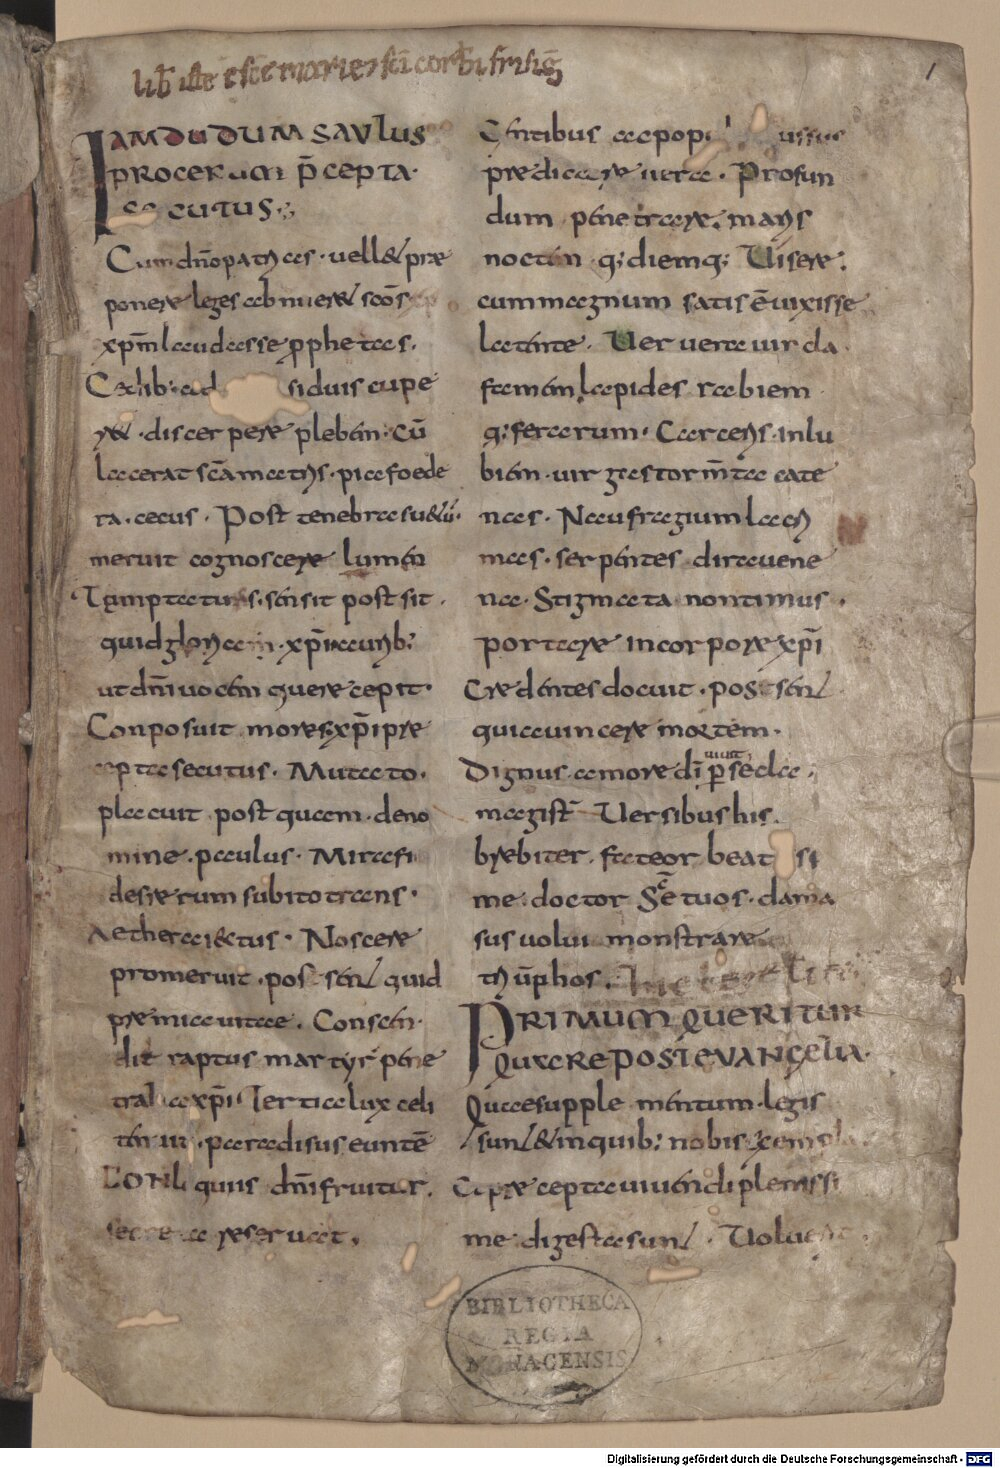 lib iste ē scē marie 7 sci corbi frisiḡ
1
IAMDUDUM SAVLUS
PROCERUM P̄CEPTA·
SECUTUS·
Cum dn̄o patrias· uell& præ
ponere leges ab nuere& scōs
xp̄m laudasse pphetas.
C&lib: ad siduis cupe
r&· discerpere plebem· cū
lacerat sc̄a matris· pia foede
ra· cecus· Post tenebras u&ū·
meruit cognoscere lumen
Temptatus· sensit post sit
quid gloriam· xp̄i aurib:
ut dn̄i uocem quere cepit·
Conposuit mores xp̄i pre
cepta secutus· Muta to·
placuit post quam· deno
mine· paulus· Mirafi
desrerum subito trans·
Aethera iectus· Noscere
promeruit· possent quid
premia uitae· Conscen·
dit raptus martyr pene
tralia xp̄i· Tertia lux celi
tenuit· paradisus euntē
CONLoquiis dn̄i fruitur·
secreta reseruat·
Gentibus ac popu ussus
predicere uera· Profun
dum penetrare· maris
noctem q; diemq; Uisere:
cum magnum satis ē uixisse
latente· Uer uera uir da
ta mem lapides rabiem
q; ferarum· Carceris· inlu
biem· uir gastor m̄ta cate
nas· Naufragium lacri
mas· serpentes diraueene
na· Stigmata non timus·
portare in corpore xp̄i
Credentes docuit· possent
qui auincere mortem·
Dignus amore dī p seclaa·
uiuit
magist̄ Uersibus his·
breuiter· fateor beatissi
me· doctor Sc̄e tuos· dama
sus uolui monstrare
triūphos·
PRIMUM QUERITUR
QUARE POST EVANGELIA·
Quae supplementum· legis
sunt & in quib: nobis exempla
& precepta uiuendi plenissi
me· digesta sunt· Uoluerit
BIBLIOTHECA
REGIA
MONACENSIS
Digitalisierung gefördert durch die Deutsche Forschungsgemeinschaft - DFG